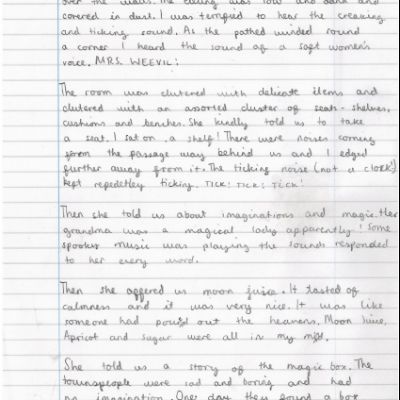 over the walls. The ceiling was low and dark and
covered in dust. I was terrified to hear the creaking
and ticking sound. As the pathed winded round
a corner I heard the sound of a soft women's
voice. MRS WEEVIL!
The room was cluttered with delicate items and
cluttered with an assorted cluster of seats - shelves,
cushions and benches. She kindly told us to take
a seat. I sat on a shelf! There were noises coming
from the passage way behind us and I edged
further away from it. The ticking noise (not a clock!)
kept repedetley ticking. TICK! TICK! TICK!
Then she told us about imaginations and magic. Her
grandma was a magical lady apparently! Some
spooky music was playing the sounds responded
to her every word.
Then she offered us moon juice. It tasted of
calmness and it was very nice. It was like
someone had poured out the heavens. Moon Juice,
Apricot and sugar were all in my
She told us a story of the magic box. The
townspeople were sad and boring and had
no imagination. One day they found a box